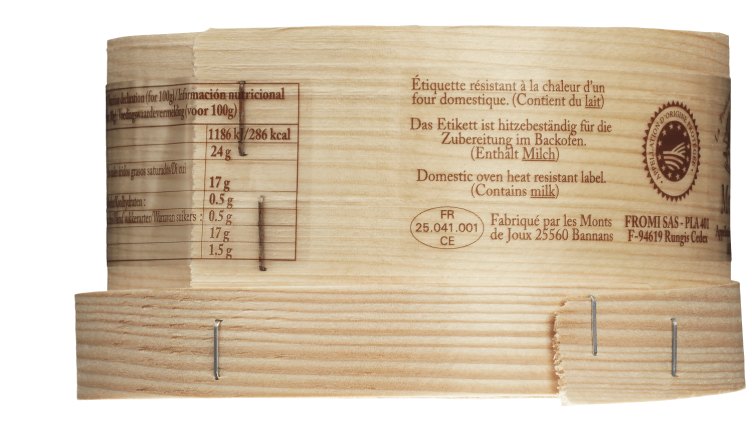 declaration (for 100g)/Información nutricional
/Voedingswaardevermelding (voor 100g)
1186 kJ/286 kcal
24 g
grasos saturados/Di cui
17 g
Koolhydraten :
0.5 g
suikers : 0.5 g
17 g
1,5 g
Étiquette résistant à la chaleur d'un
four domestique. (Contient du lait)
Das Etikett ist hitzebeständig für die
Zubereitung im Backofen.
(Enthält Milch)
Domestic oven heat resistant label.
(Contains milk)
FR
25.041.001
CE
Fabriqué par les Monts
de Joux 25560 Bannans
APPELLATION D'ORIGINE PROTÉGÉE
FROMI SAS - PLA 401
F-94619 Rungis Cedex